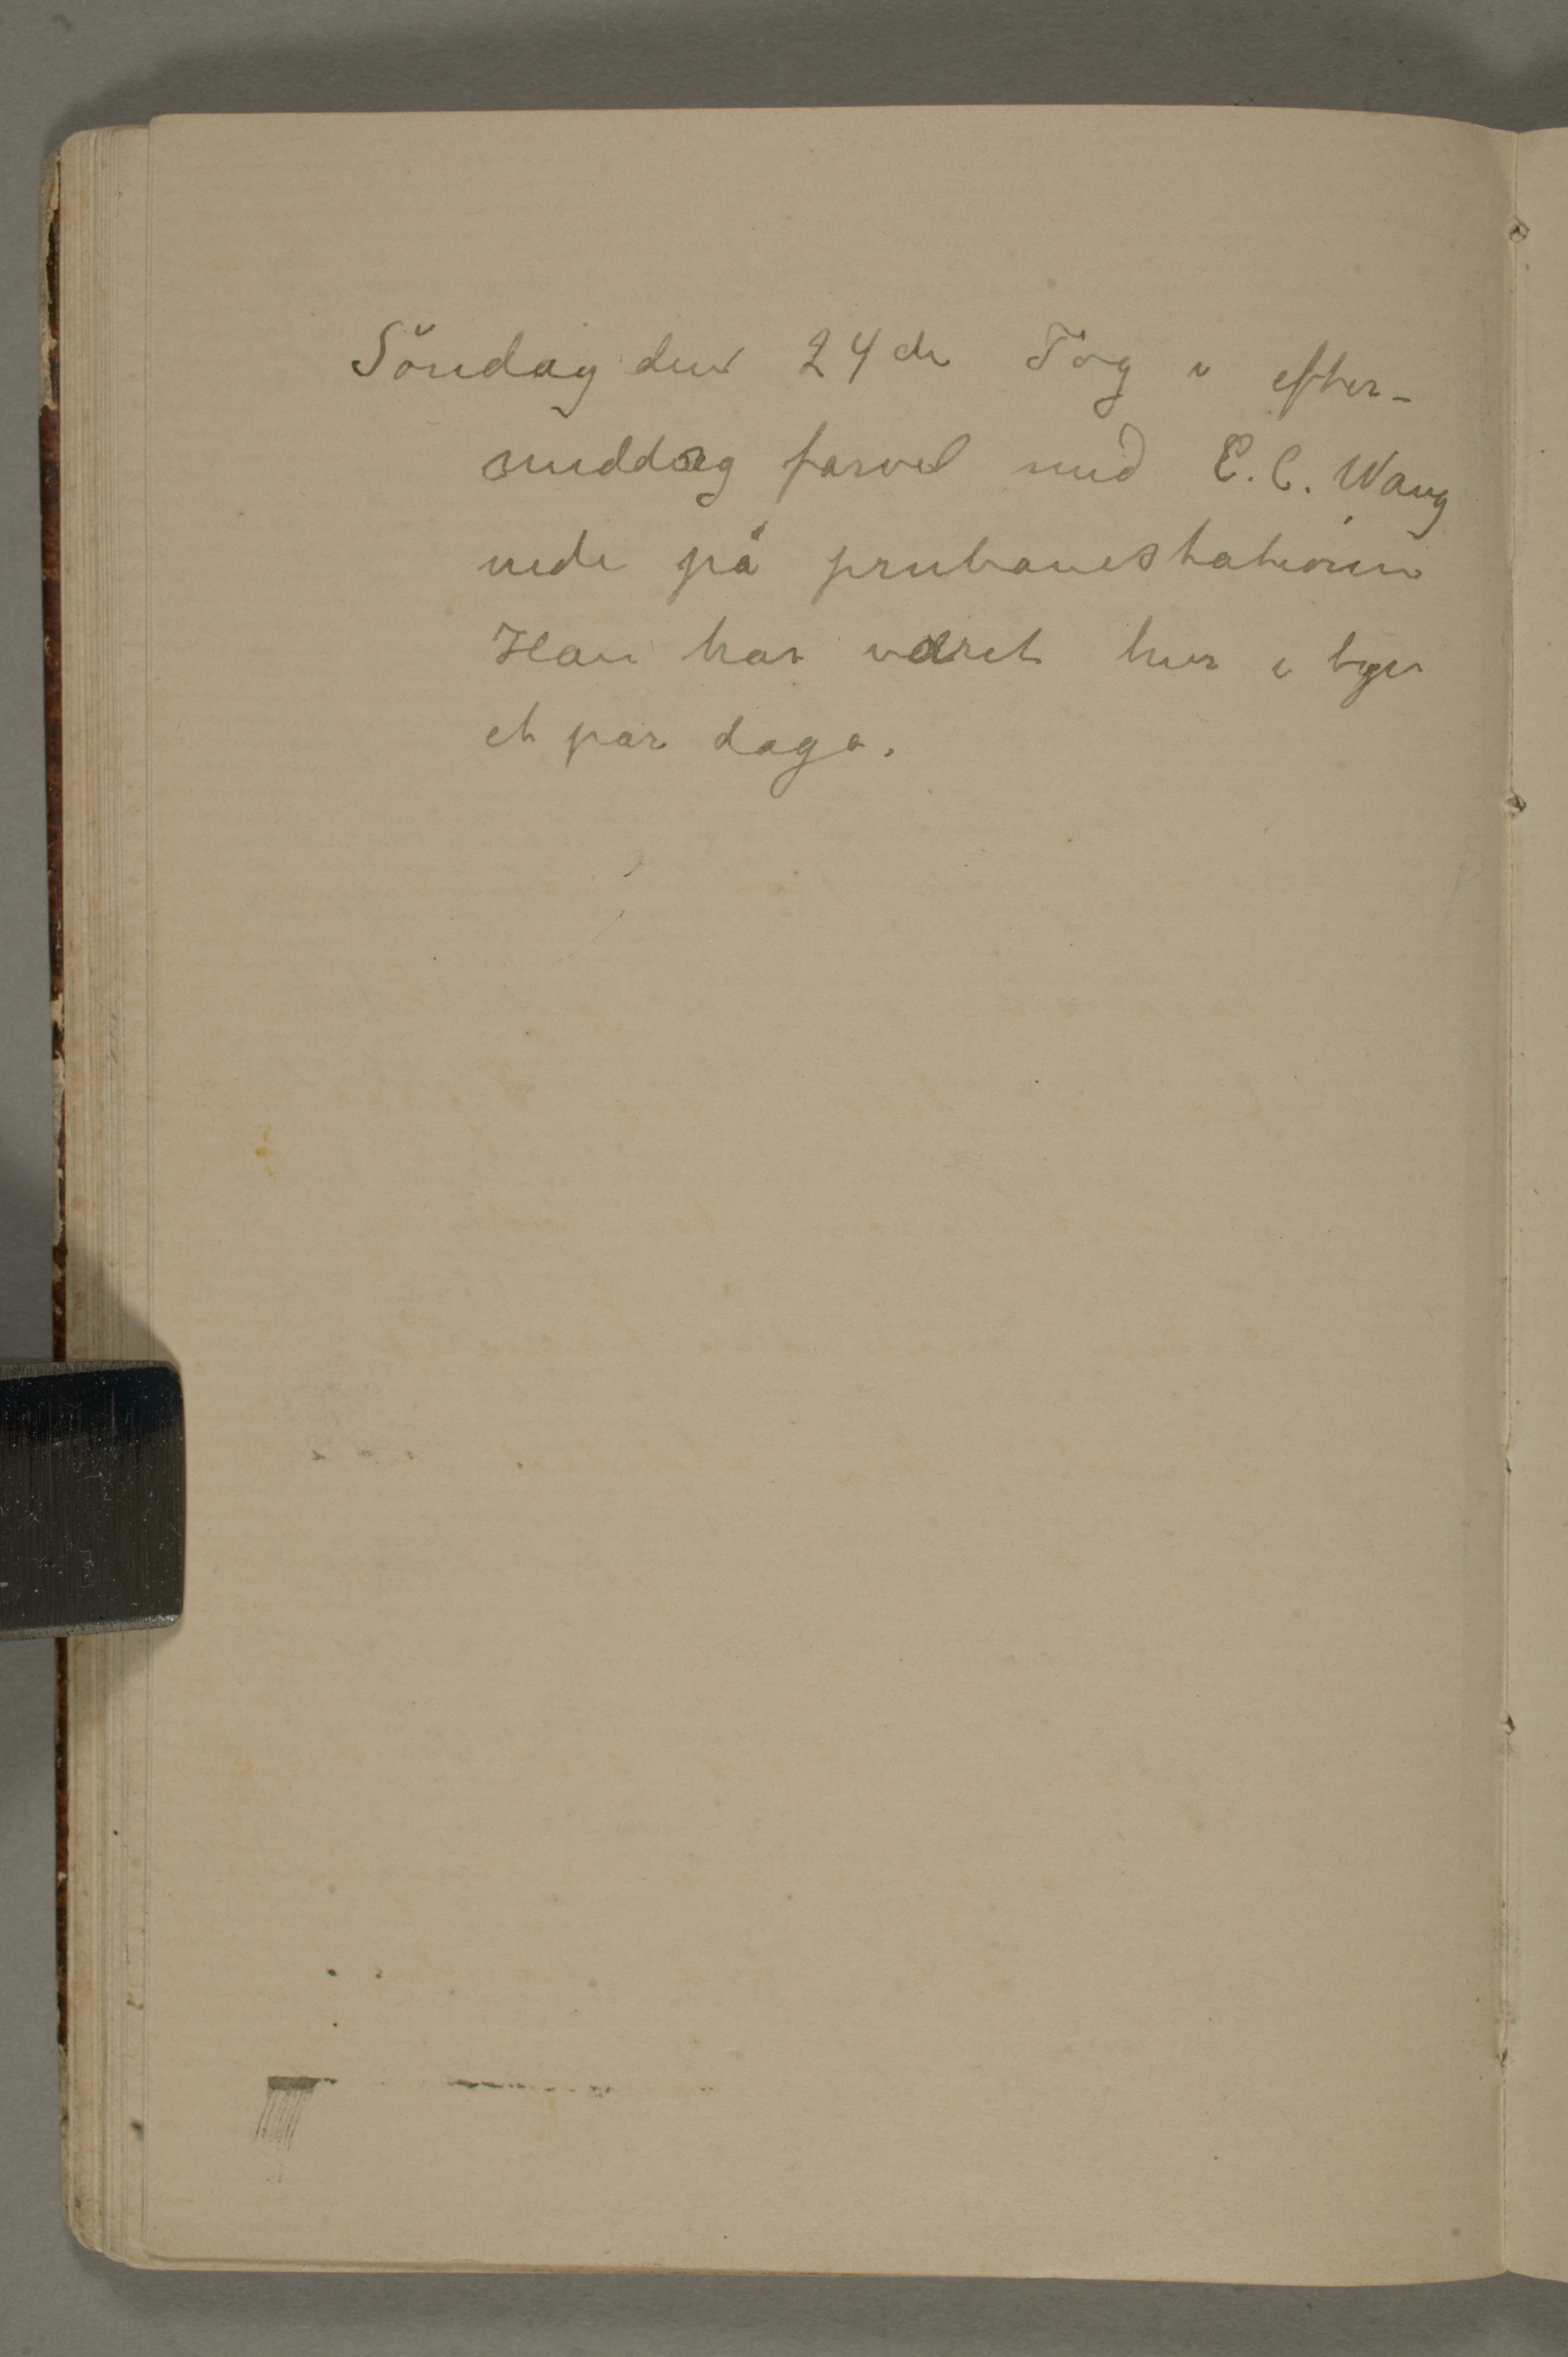 Söndag den 24de Tog i efter-
middag farvel med E. C. Wang
nede på jernbanestationen
Han har været her i byen
et par daga.